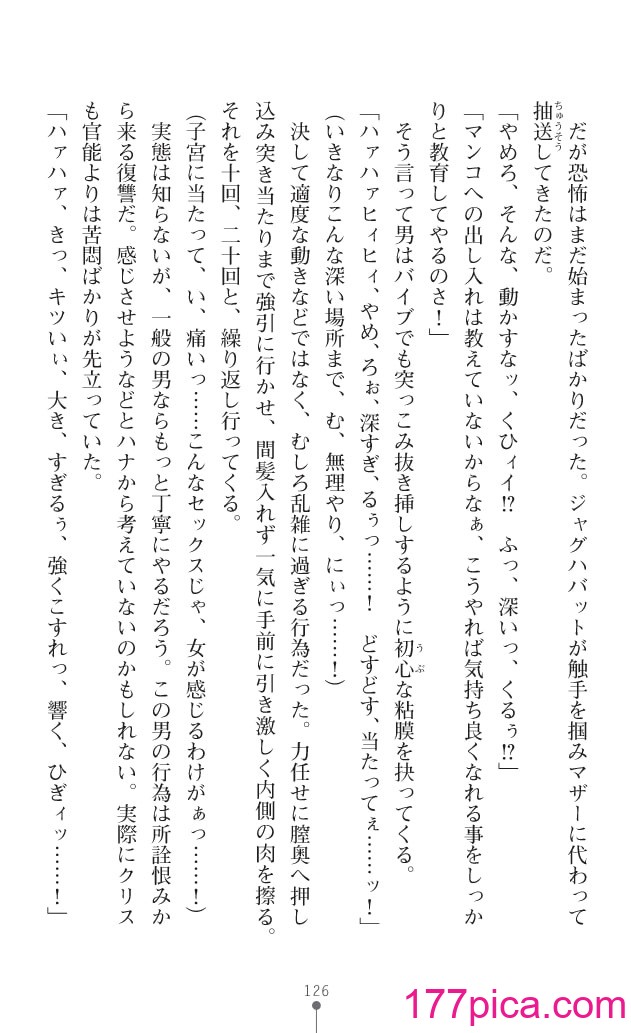 だが恐怖はまだ始まったばかりだった。ジャグハバットが触手を掴みマザーに代わって
抽送してきたのだ。
ちゅうそう
「やめろ、そんな、動かすなッ、くひィイ!?　ふっ、深いっ、くるぅ!?」
「マンコへの出し入れは教えていないからなぁ、こうやれば気持ち良くなれる事をしっか
りと教育してやるのさ！」
そう言って男はバイブでも突っこみ抜き挿しするように初心な粘膜を抉ってくる。
うぶ
「ハァハァヒィヒィ、やめ、ろぉ、深すぎ、るぅっ……！　どすどす、当たってぇ……ッ！」
（いきなりこんな深い場所まで、む、無理やり、にぃっ……！）
決して適度な動きなどではなく、むしろ乱雑に過ぎる行為だった。力任せに膣奥へ押し
込み突き当たりまで強引に行かせ、間髪入れず一気に手前に引き激しく内側の肉を擦る。
それを十回、二十回と、繰り返し行ってくる。
（子宮に当たって、い、痛いっ……こんなセックスじゃ、女が感じるわけがぁっ……！）
実態は知らないが、一般の男ならもっと丁寧にやるだろう。この男の行為は所詮恨みか
ら来る復讐だ。感じさせようなどとハナから考えていないのかもしれない。実際にクリス
も官能よりは苦悶ばかりが先立っていた。
「ハァハァ、きっ、キツいぃ、大き、すぎるぅ、強くこすれっ、響く、ひぎィッ……！」
126
177pica.com